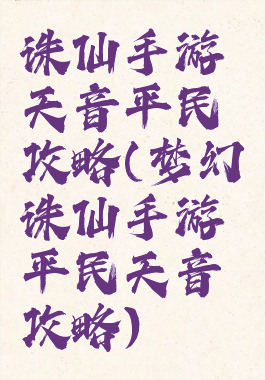 诛仙手游
天音平民
攻略(梦幻
诛仙手游
平民天音
攻略)